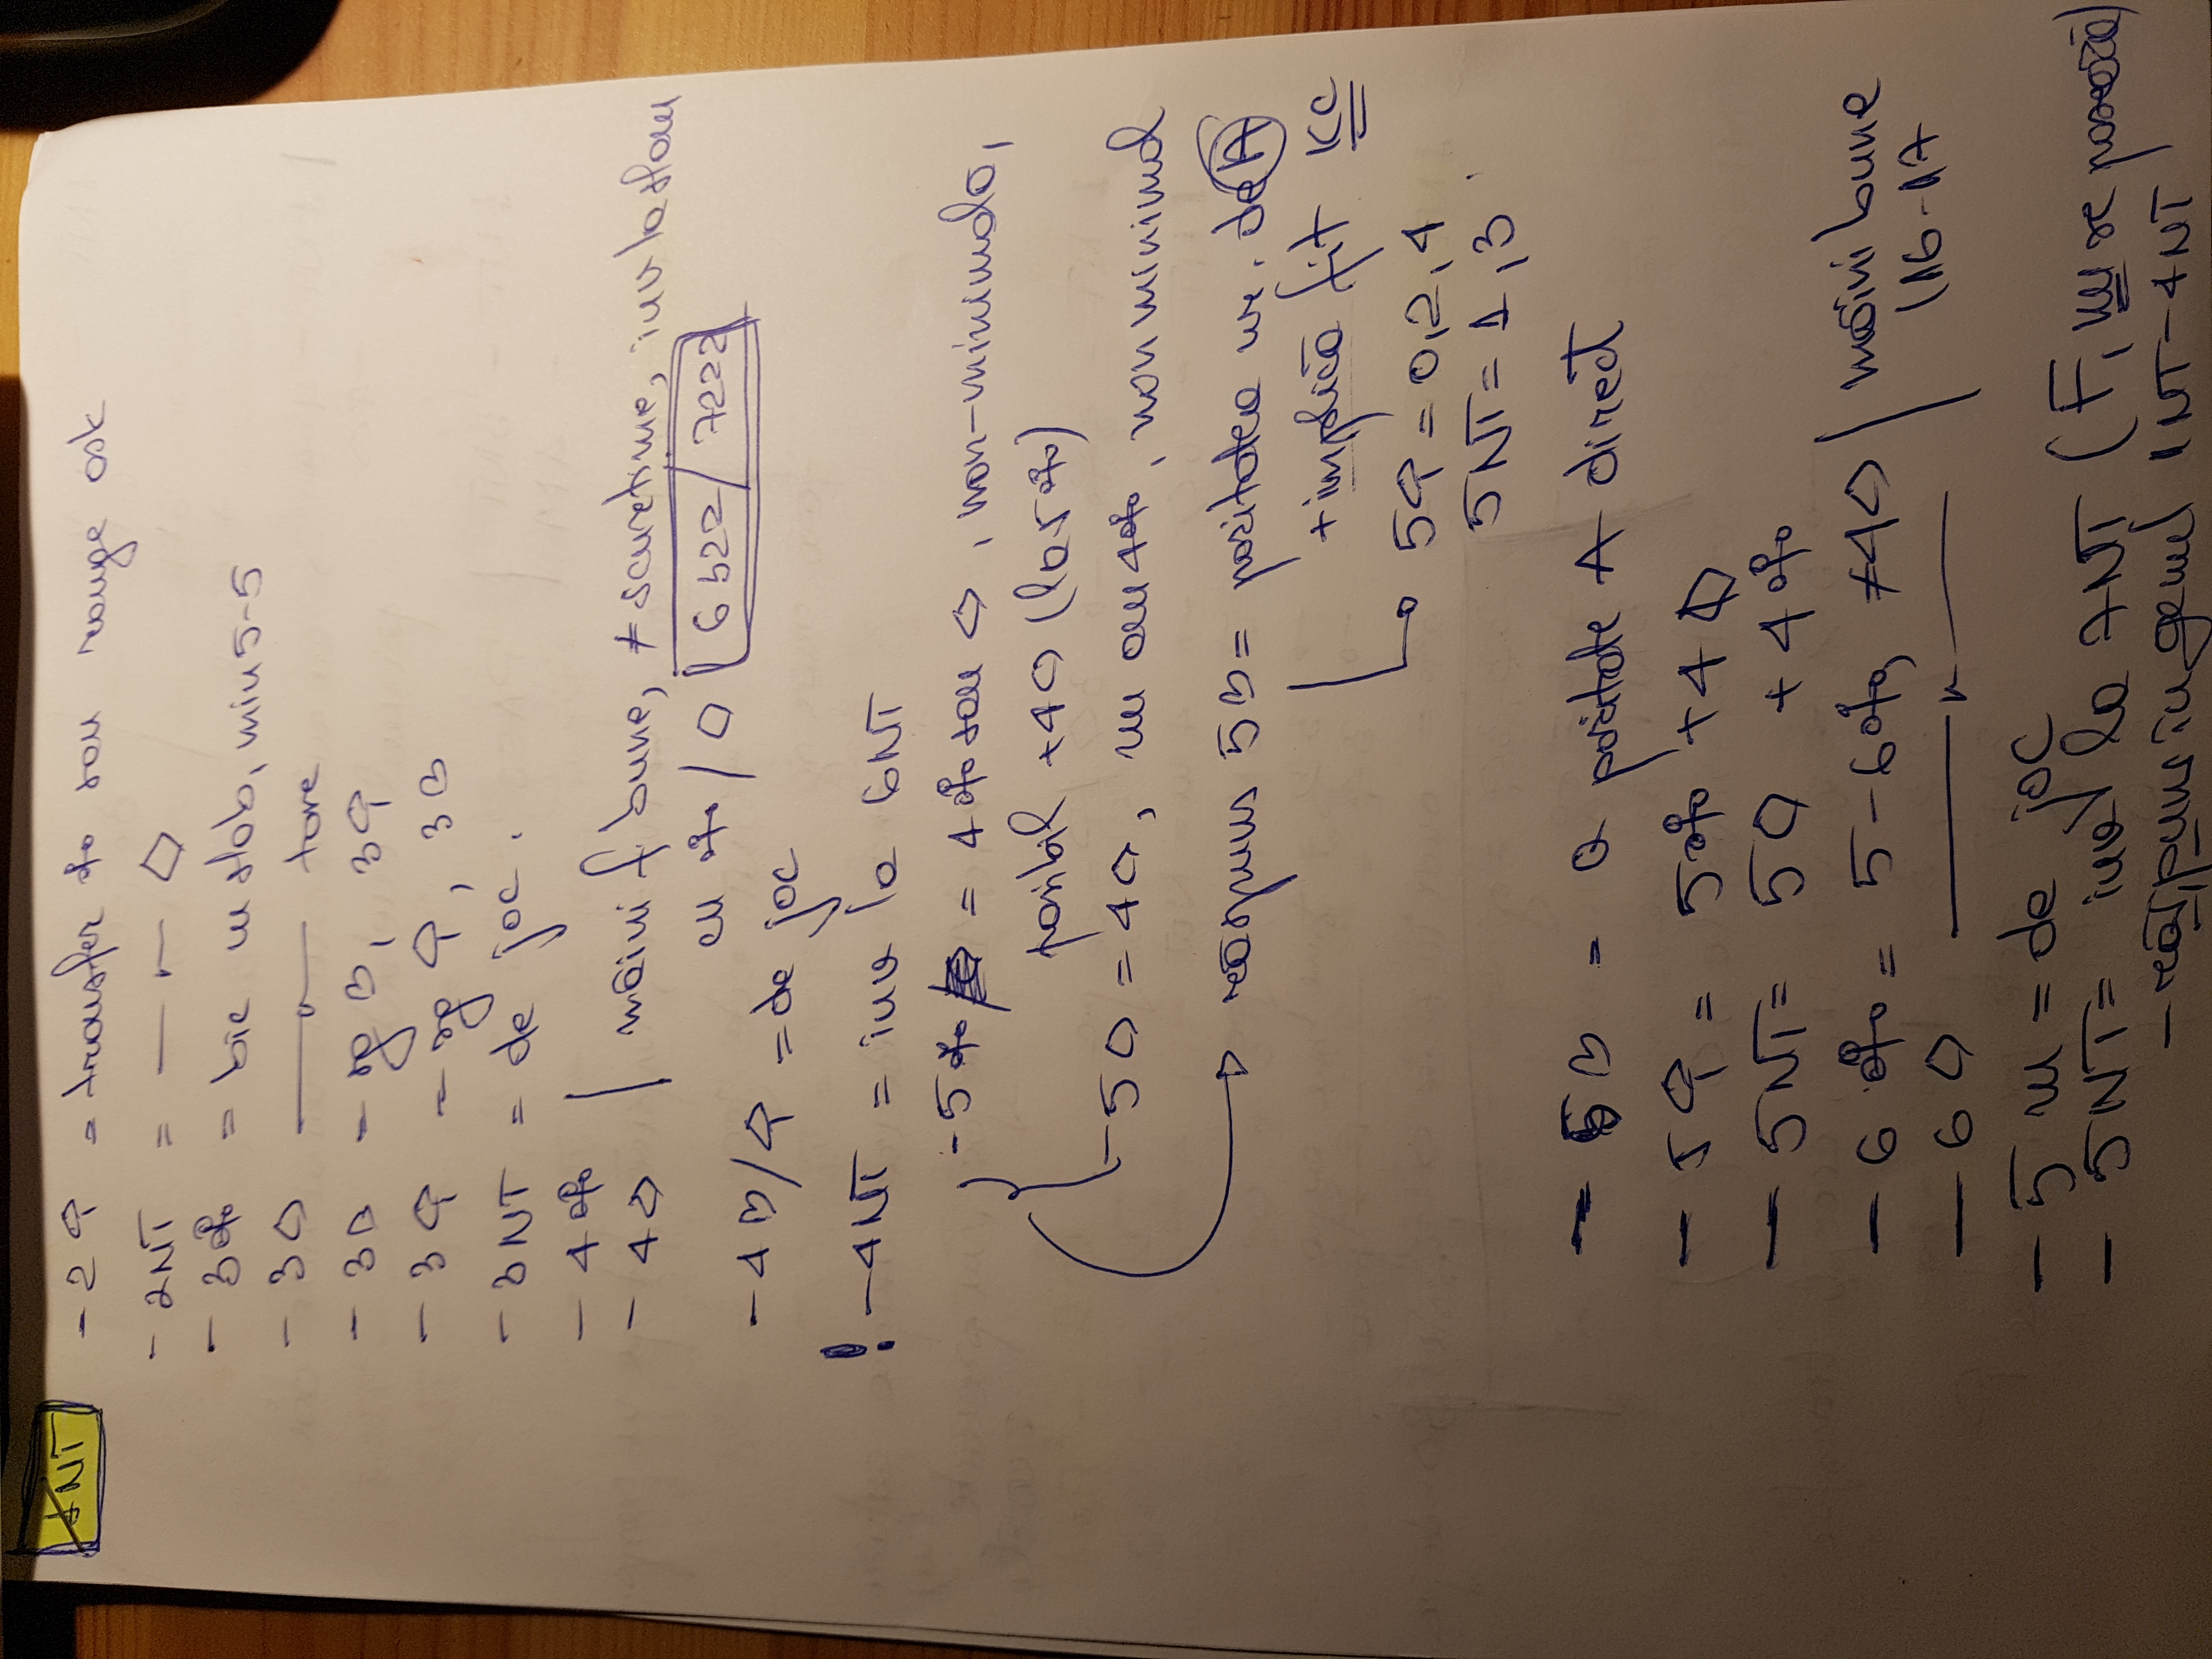 1NT
- 2♠ = transfer ♣ sau range ask
- 2NT = —〃— ♢
- 3♣ = bic m slab, min 5-5
- 3♢ —〃— tare
- 3♡ = sg ♡, 3♠
- 3♠ = sg ♠, 3♡
- 3NT = de joc.
- 4♣
- 4♢ | mâini f bune, ≠ scurtime, inv la slam
cu ♣ / ♢ 6322 / 7222
- 4♡/♠ = de joc
! - 4NT = inv la 6NT
- 5♣ = 4♣ sau ♢, non-minimala,
posibil +4♢ (la 5♣)
- 5♢ = 4♢, nu am 4♣, non minimal
→ răspuns 5♡ = paritatea nr. de A
+ implică fit KC
5♠ = 0,2,4
5NT = 1,3
- 5♡ = paritate A direct
- 5♠ = 5♣ +4♢
- 5NT = 5♢ +4♣
- 6♣ = 5-6♣, ≠4♢ | mâini bune
(16-17
- 6♢ —〃—
- 5m = de joc
- 5NT = inv la 7NT (F, nu se pasează)
- răspuns în genul 1NT-4NT